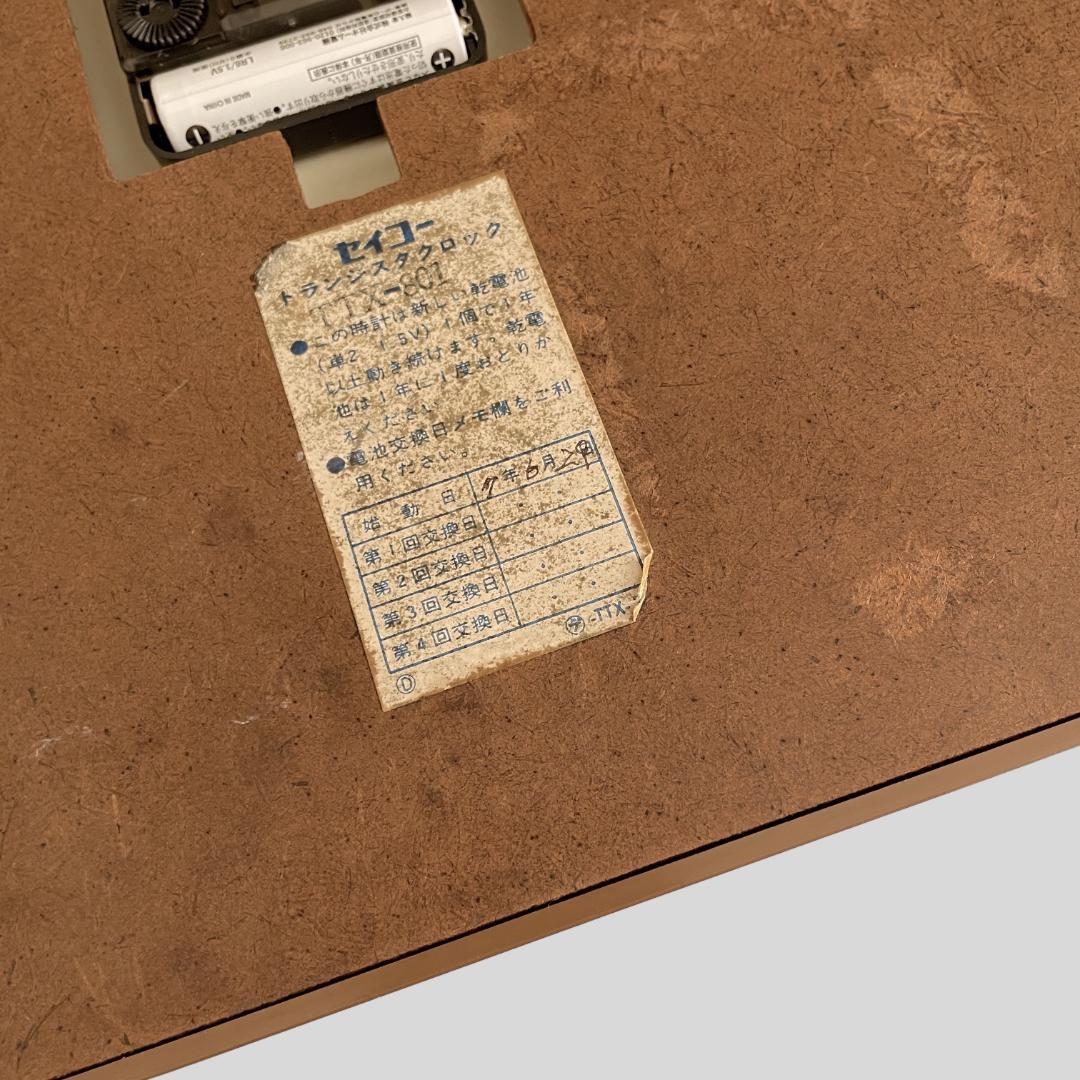 LR6/1.5V
MADE IN CHINA
セイコー
トランジスタクロック
TTX-601
●この時計は新しい乾電池
(単2 1.5V)1個で1年
以上動き続けます。乾電
池は1年に1度おとりか
えください。
●電池交換日メモ欄をご利
用ください。
始動日 7年6月29日
第1回交換日
第2回交換日
第3回交換日
第4回交換日
Ⓓ ㋢-TTX